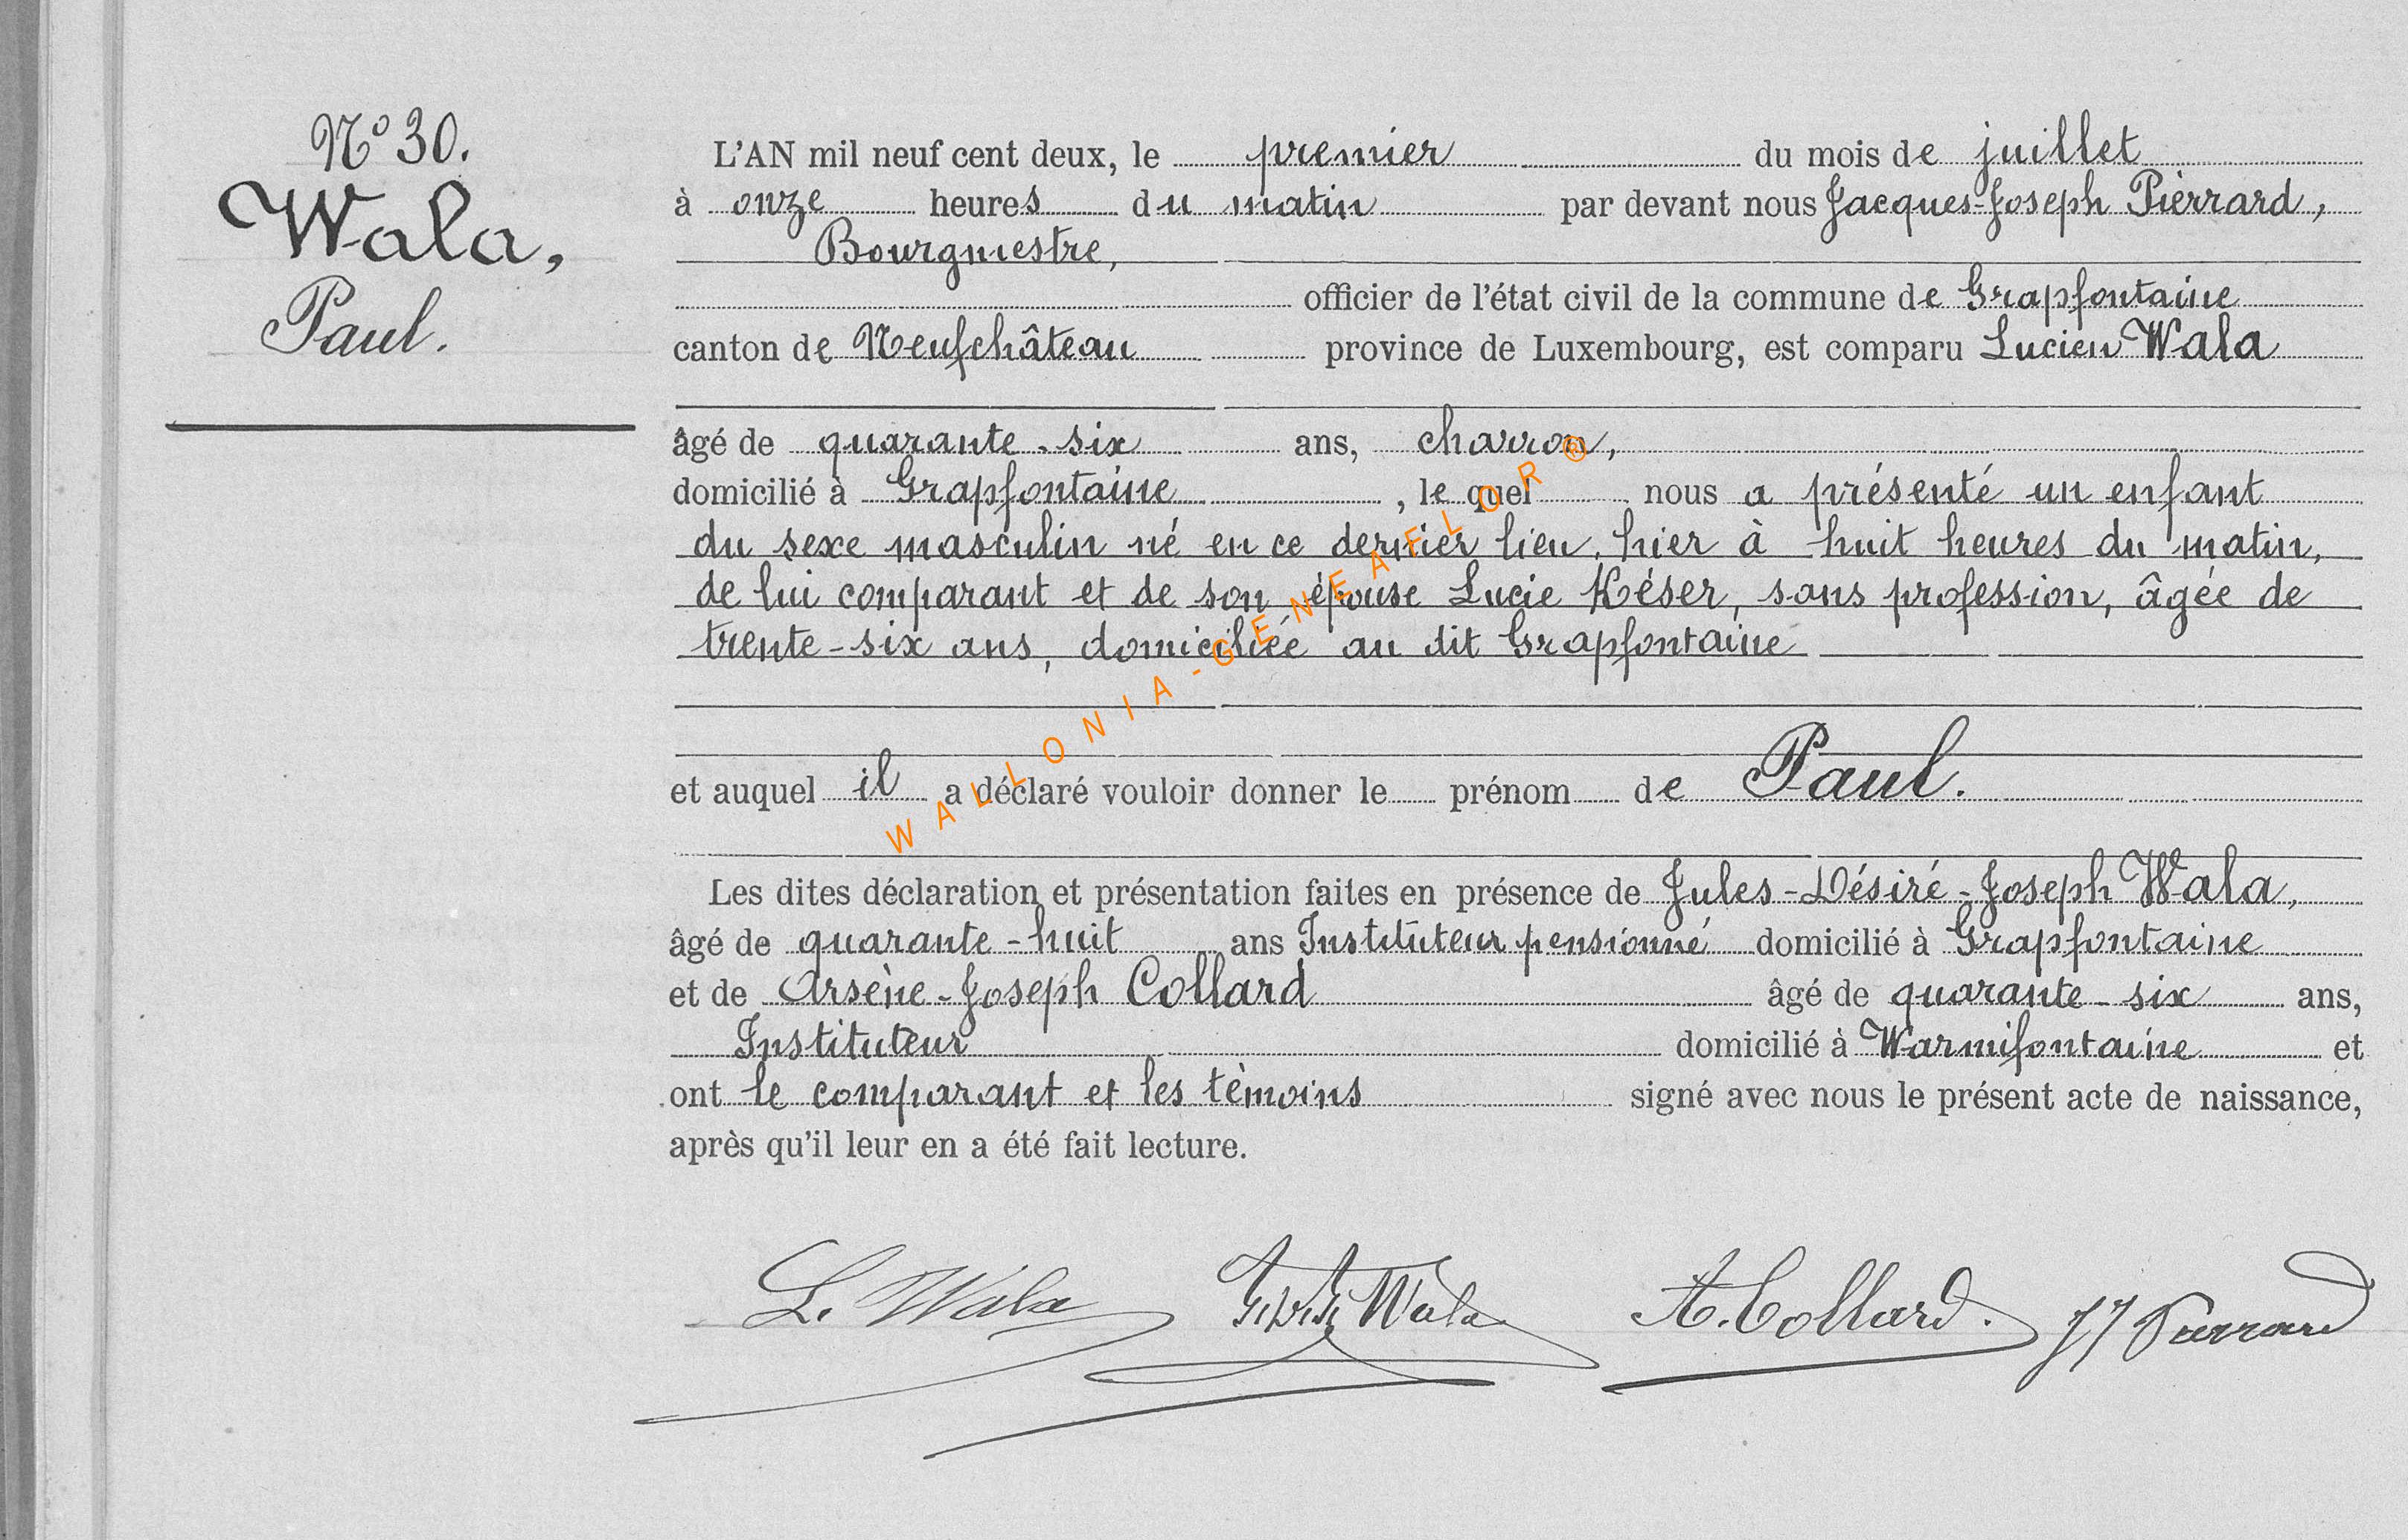 N° 30.
Wala,
Paul.
L'AN mil neuf cent deux, le premier du mois de juillet
à onze heures du matin par devant nous Jacques-Joseph Pièrrard,
Bourgmestre,
officier de l'état civil de la commune de Grapfontaine
canton de Neufchâteau province de Luxembourg, est comparu Lucien Wala
âgé de quarante-six ans, charron,
domicilié à Grapfontaine, le quel nous a présenté un enfant
du sexe masculin né en ce dernier lieu, hier à huit heures du matin,
de lui comparant et de son épouse Lucie Késer, sans profession, âgée de
trente-six ans, domiciliée au dit Grapfontaine
et auquel il a déclaré vouloir donner le prénom de Paul.
Les dites déclaration et présentation faites en présence de Jules-Désiré-Joseph Wala,
âgé de quarante-huit ans Instituteur pensionné domicilié à Grapfontaine
et de Arsène-Joseph Collard âgé de quarante-six ans,
Instituteur domicilié à Warmifontaine et
ont le comparant et les témoins signé avec nous le présent acte de naissance,
après qu'il leur en a été fait lecture.
L. Wala J.D.J. Wala A. Collard. JJ Pierrard
WALLONIA-GENEAFLOR ®